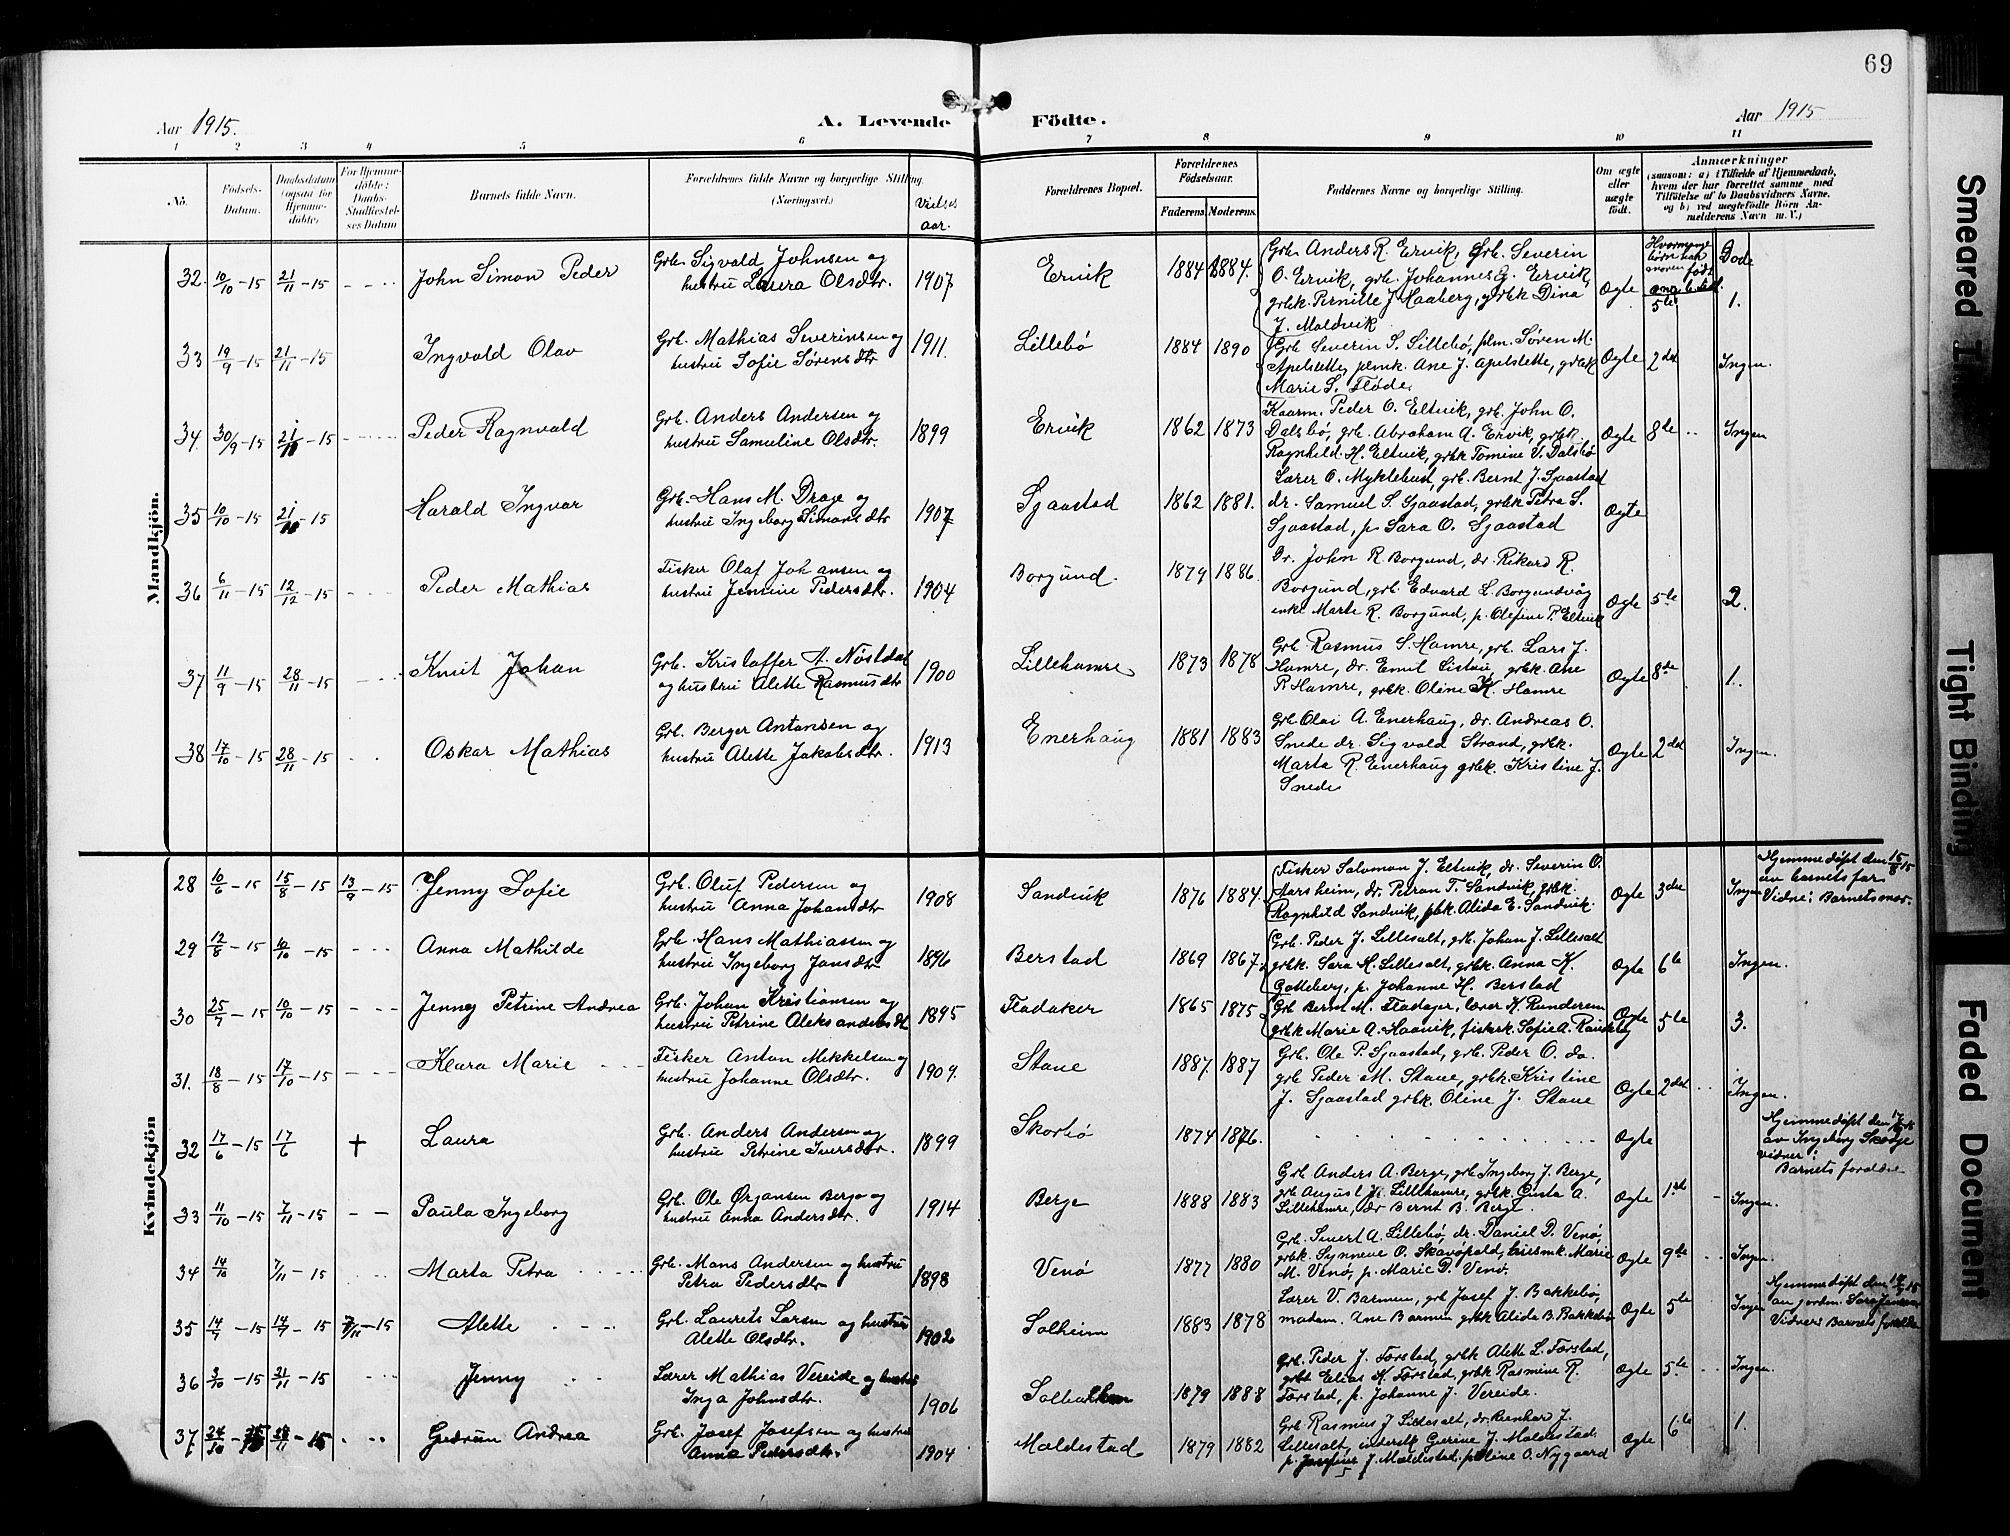 69
Aar 1915.
A. Levende Födte.
Aar 1915
1 2 3 4 5 6 7 8 9 10 11
No.
Födsels-
Datum.
Daabsdatum
(ogsaa for
Hjemme-
döbte)
For Hjemme-
döbte:
Daabs-
Stadfæstel-
ses Datum
Barnets fulde Navn.
Forældrenes fulde Navne og borgerlige Stilling.
(Næringsvei.)
Vielses
aar.
Forældrenes Bopæl.
Forældrenes
Födselsaar.
Faderens. Moderens.
Faddernes Navne og borgerlige Stilling.
Om ægte
eller
uægte
født.
Anmærkninger
(saasom: a) i Tilfælde af Hjemmedaab,
hvem der har forrettet samme med
Tilföielse af to Daabsvidners Navne.
og b) ved uægtefödte Börn An-
melderens Navn m. V.)
Mandkjön.
32. 10/10 - 15 21/11 - 15 John Simon Peder
Grb. Sigvald Johnsen og
hustru Laura Olsdtr. 1907
Ervik 1884 1884.
Grb. Anders R. Ervik, Grb. Severin
O. Ervik, grb. Johannes G. Ervik,
grbk. Pernille J. Haaberg, grbk Dina
J. Moldvik
Ægte 5te Døde 1.
33 19/9 - 15 21/11 - 15 Ingvald Olav
Grb. Mathias Severinsen og
hustru Sofie Sørensdtr 1911.
Lillebø 1884 1890
Grb Severin S. Lillebø, plm. Søren M.
Apelsette, plmk. Ane J. Apelsette, grbk
Marie S. Fløde.
Ægte 2det Ingen.
34. 30/9 - 15 - 15 Peder Ragnvald
Grb. Anders Andersen og
hustru Samuline Olsdtr. 1899
Ervik 1862 1873
Kaarm. Peder O. Eltvik, grb. John O.
Dalsbø, grb. Abraham A. Ervik, grbk.
Ragnhild H. Eltvik, grbk Tomine V. Dalsbø
Ægte 8de Ingen
35 10/10 - 15 - 15 Harald Ingvar
Grb. Hans M. Drage og
hustru Ingeborg Simonsdtr 1907
Sjaastad 1862 1881.
Lærer O. Myklebust, grb. Bernt J. Sjaastad
dr. Samuel S. Sjaastad, grbk Petra S.
Sjaastad, p. Sara O. Sjaastad
Ægte
36 6/11 - 15 12/12 - 15 Peder Mathias
Fisker Olaf Johansen og
hustru Jensine Pedersdtr. 1904
Borgund. 1879 1886.
Dr. John R. Borgund, dr. Rikard R.
Borgund, grb. Edvard L. Borgundvåg
enke Marte R. Borgund, p. Olefine P. Eltvik
Ægte 5te 2.
37 11/9 - 15 28/11 - 15 Knut Johan
Grb. Kristoffer A. Nøstdal
og hustru Alette Rasmusdtr 1900
Lillehamre 1873 1878
Grb Rasmus S. Hamre, grb. Lars J.
Hamre, dr. Emil Listau, grbk. Ane
R Hamre, grbk. Oline K. Hamre
Ægte 8de 1.
38 17/10 - 15 28/11 - 15 Oskar Mathias
Grb. Berger Antonsen og
hustru Alette Jakobsdtr. 1913
Enerhaug 1881 1883
Grb Olai A. Enerhaug, dr. Andreas O.
Snede dr. Sigvald Strand, grbk.
Marta R. Enerhaug grbk. Kristine J.
Snede
Ægte 2det Ingen.
Kvindekjön
28 10/6 - 15 15/8 - 15 13/9 - 15 Jenny Sofie
Grb. Oluf Pedersen og
hustru Anna Johansdtr 1908
Sandvik 1876 1884.
Fisker Salomon J. Eltvik, dr. Severin O.
Aarsheim, dr. Petran T. Sandvik, grbk.
Ragnhild Sandvik, pbk Alida E. Sandvik.
Ægte 3die Ingen
Hjemmedøpt den 15/8 15
av barnets far
Vidne: Barnets mor.
29 12/8 - 15 10/10 - 15 Anna Mathilde
Grb. Hans Mathiassen og
hustru Ingeborg Jansdtr 1896
Berstad 1869 1867.
Grb. Peder J. Lillesalt, grb. Johan J. Lillesalt
grbk. Sara M. Lillesalt, grbk. Anna K.
Gotteberg, p. Johanne H. Berstad
Ægte 6te Ingen.
30 25/7 - 15 10/10 - 15 Jenney Petrine Andrea
Grb. Johan Kristiansen og
hustru Petrine Aleksandersdt 1895
Fladaker 1865 1875
Grb Bernt M. Fladager, lærer K. Runderem
grbk Marie A. Haanik, fiskerk. Sofie A.
Ægte 5te 3.
31. 18/8 - 15 17/10 - 15 Klara Marie
Fisker Anton Mekkelsen og
hustru Johanne Olsdtr. 1909.
Stave 1887. 1887
Grb. Ole P. Sjaastad, grb. Peder O. do.
grb Peder M. Stave, grbk. Kristine
J. Sjaastad grbk. Oline J. Stave
Ægte 2det Ingen.
32 17/6 - 15 17/6 + Laura
Grb. Anders Andersen og
hustru Petrine Iversdtr. 1899
Skorbø 1874 1876.
Ægte
Hjemmedøpt den 17/6
av Ingeborg Skodje
vidner:
Barnets foreldre
33 11/10 - 15 7/11 - 15 Paula Ingeborg
Grb. Ole Ørjansen Berge og
hustru Anna Andersdtr. 1914
Berge 1888 1883
Grb Anders A. Berge, grb Ingeborg J. Berge,
grb August Lillehamre, grbk. Gusta A.
Lillehamre, dr Bernt B. Berge.
Ægte 1ste Ingen.
34 14/10 7/11 - 15 Marta Petra
Grb. Mons Andersen og hustru
Petra Pedersdtr 1898
Venø 1877 1880
Grb. Sivert A. Lillebø, dr. Daniel D. Venø,
grbk. Synneve O. Skavøpold, husmk. Marie
M. Venø, p. Marie D. Venø.
Ægte 9de Ingen
35 14/7 - 15 14/7 - 15 7/11 - 15 Alette
Grb. Laurits Larsen og hustru
Alette Olsdtr. 1902
Solheim 1883 1878
Lærer V. Barmen, grb Josef J. Bakkebø,
madam. Ane Barmen grbk Alida B. Bakkebø
Ægte 5te Ingen
Hjemmedøpt den 14/7 15
av jordm. Sara Jensen
Vidner: Barnets foreldre
36 3/10 - 15 21/11 - 15 Jenny
Lærer Mathias Vereide og hustru
Inga Johnsdtr. 1906
1879 1888
Grb. Peder J. Førstad, grbk Alette L. Førstad,
grbk Elias K. Førstad, grbk Rasmine R.
Førstad, p. Johanne J. Vereide.
Ægte 5te Ingen.
37 24/10 - 15 28/11 - 15 Gudrun Andrea
Grb. Josef Josefsen og hustru
Anna Pedersdtr. 1904
Moldestad 1879 1882
Grb. Rasmus J Lillesalt, dr. Reinhard J.
Lillesalt, inderstk Gurine J. Moldestad
p. Josefine J. Moldestad. p Oline O. Nygaard
Ægte 6te 1.
Smeared Ink
Tight Binding
Faded Document